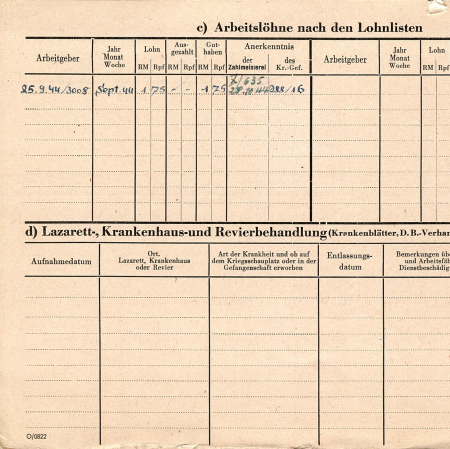 c) Arbeitslöhne nach den Lohnlisten
Arbeitgeber
Jahr
Monat
Woche
Lohn
RM Rpf
Aus-
gezahlt
RM Rpf
Gut-
haben
RM Rpf
Anerkenntnis
der
Zahlmeisterei
des
Kr.-Gef.
Arbeitgeber
Jahr
Monat
Woche
Lohn
RM Rpf
25.9.44/3008 Sept. 44 1 75 - - 1 75 28.10.44 288/16
635
d) Lazarett-, Krankenhaus-und Revierbehandlung (Krankenblätter, D. B.-Verhan
Aufnahmedatum
Ort.
Lazarett, Krankenhaus
oder Revier
Art der Krankheit und ob auf
dem Kriegsschauplatz oder in der
Gefangenschaft erworben
Entlassungs-
datum
Bemerkungen üb
und Arbeitsfäh
Dienstbeschädig
O/0822